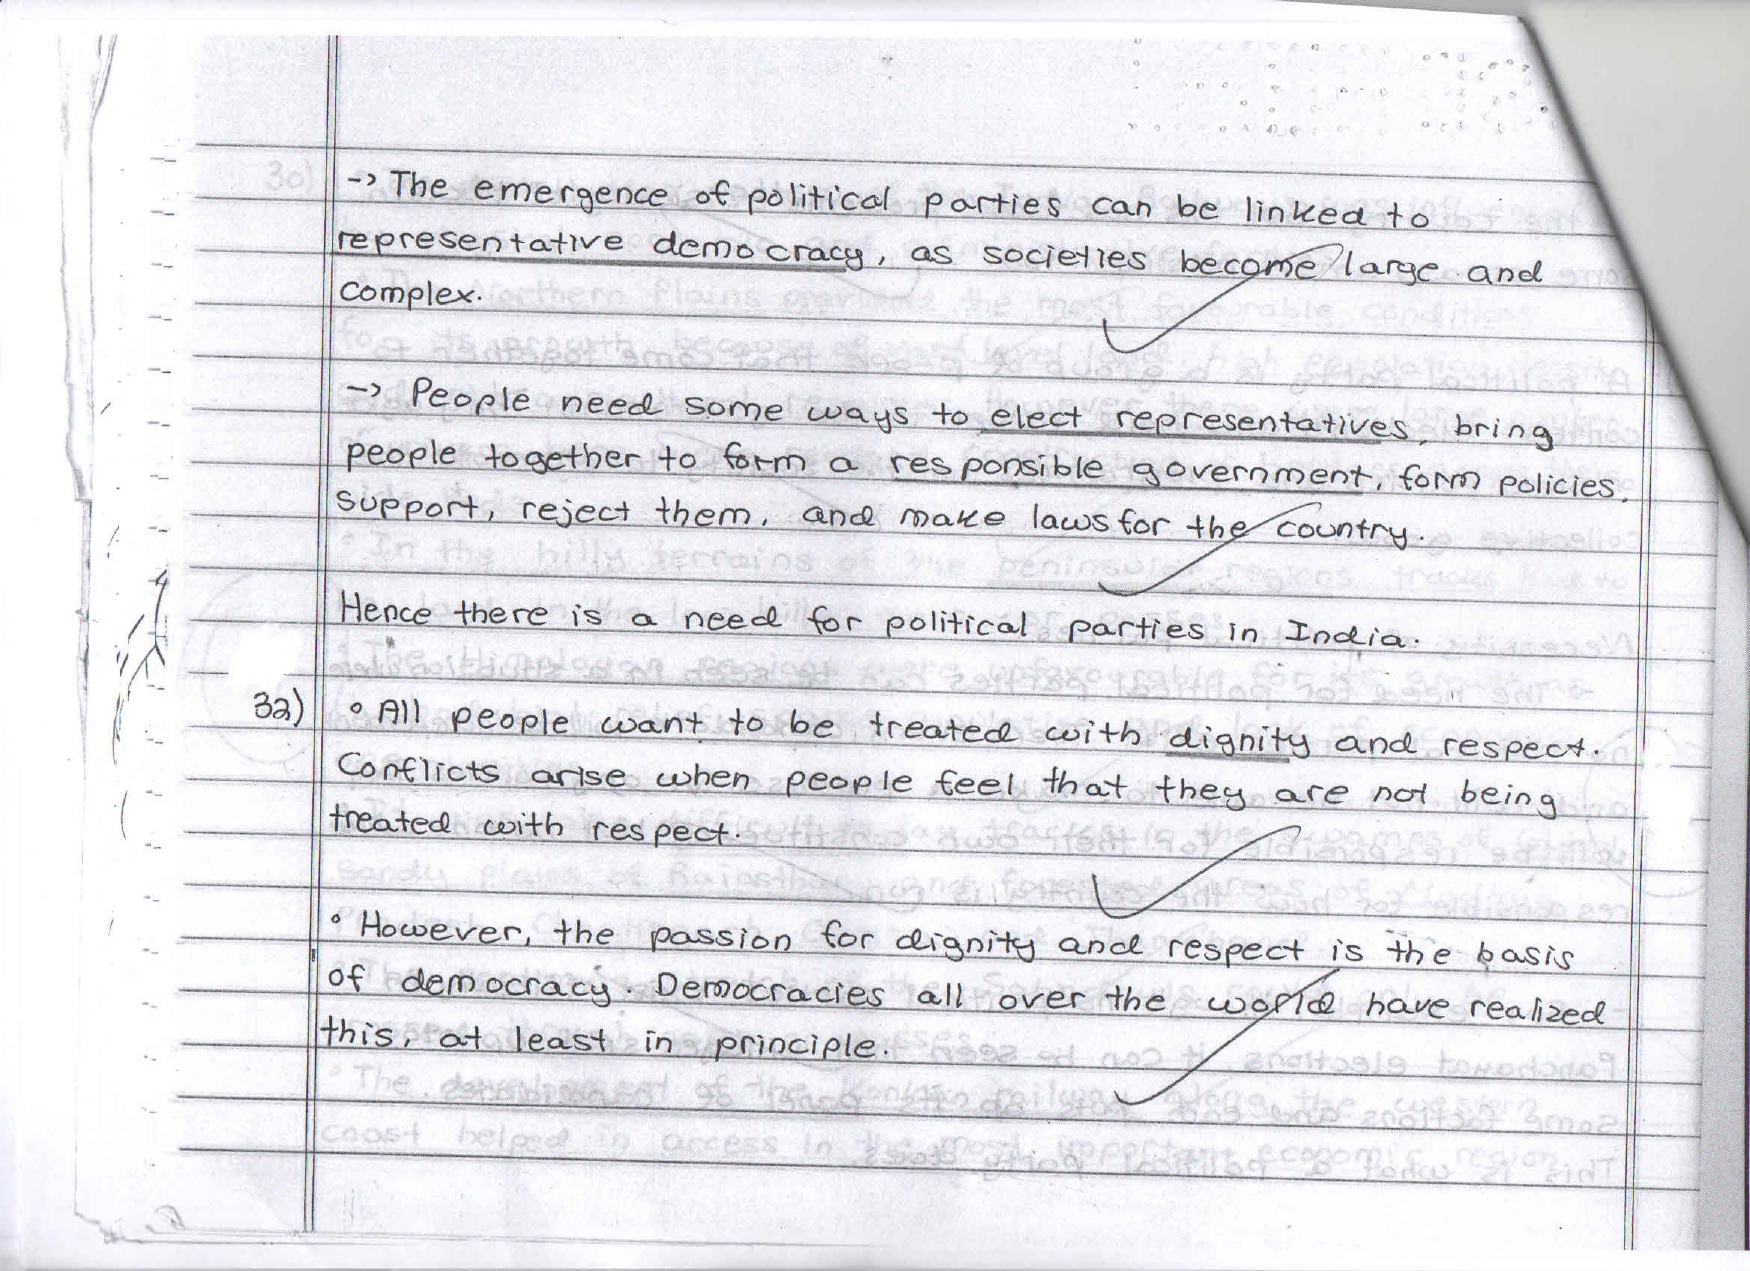 -> The emergence of political parties can be linked to
representative democracy, as societies become large and
complex.
-> People need some ways to elect representatives, bring
people together to form a responsible government, form policies,
support, reject them, and make laws for the country.
Hence there is a need for political parties in India.
32) ° All people want to be treated with dignity and respect.
Conflicts arise when people feel that they are not being
treated with respect.
° However, the passion for dignity and respect is the basis
of democracy. Democracies all over the world have realized
this, at least in principle.